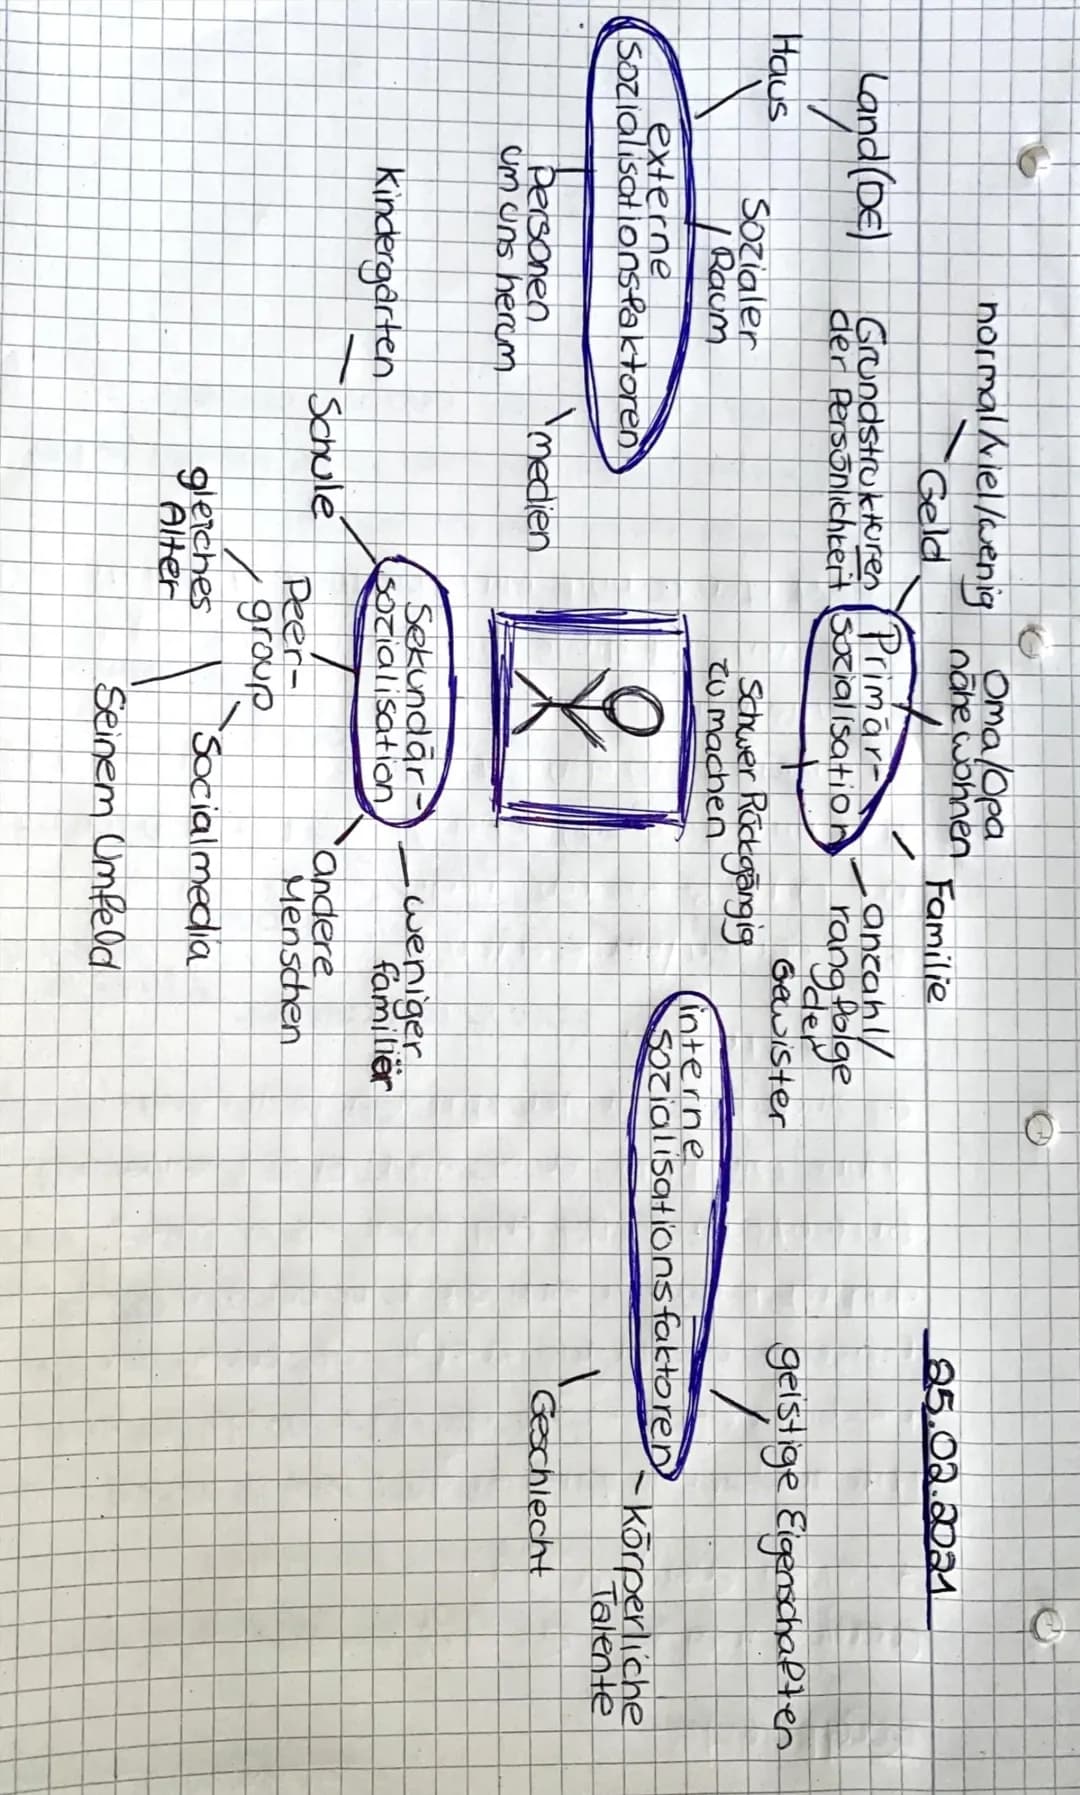 25.02.2021
normal/viel/wenig
Geld
Oma/Opa
nähe wohnen
Familie
Land (DE)
Haus
Grundstrukturen
der Persönlichkeit
Primär-
sozialisation
anzahl/
rangfolge
der
Gewister
Sozialer
Raum
Schwer Rückgängig
zu machen
geistige Eigenschaften
externe
sozialisationsfaktoren
interne
sozialisationsfaktoren
Körperliche
Talente
Personen
um uns herum
medien
Geschlecht
Kindergarten
Schule
Sekundär-
sozialisation
weniger
familiär
Peer-
group
andere
Menschen
gleiches
Alter
Socialmedia
Seinem Umfeld